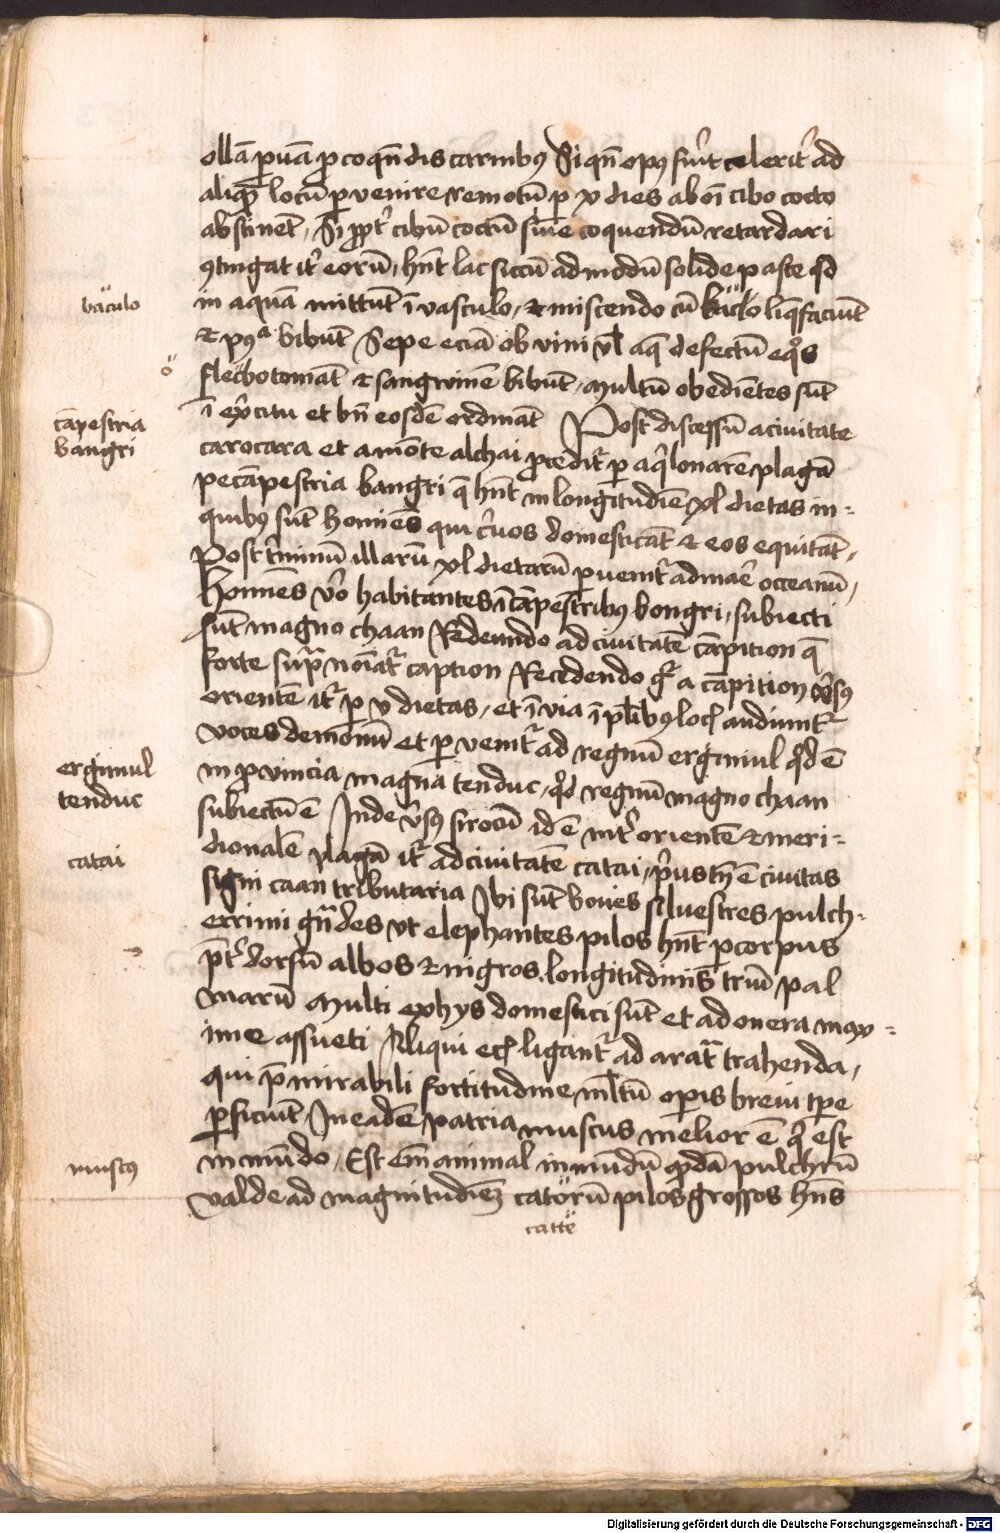 ollā ꝑuā ꝓ coqn̄dis carnibꝯ Si qn̄ opꝯ fūit celerit̉ ad
aliqḋ locū ꝑvenire remotū ꝑ x dies ab oī cibo cocto
abstinēt, Si ꝓpt̉ cibū coctū siue coquendū retardari
ꝯtingat it̉ eorū, hn̄t lac siccū ad modū solide paste qd
in aquā mittūt ī vasculo, ⁊ miscendo cū baclo liq̄faciūt
⁊ pꝯᵃ bibūt Sepe eciā ob vini vl̄ aq̄ defectū eqͦs
flecbotomāt ⁊ sangwinē bibūt, multū obediētes sūt
ī exc̉itu et bn̄ eosdē ordināt Post discessū a ciuitate
carocara et a mōte alchai ꝓcedit̉ ꝑ aq̉lonarē plagā
pe cāpestria bangri q̄ hn̄t in longitudiē xl dietas in=
quibꝯ sūt homiēs qui c̉uos domesticāt ⁊ eos equitāt,
Post t̉minū illarū xl dietarū ꝑuenit̉ ad mar̄ occeanū,
Homiēs v̉o habitantes ī cāpestribꝯ bongri, subiecti
sūt magno chaan Redeundo ad ciuitatē cāpition q̄
forte sup̄ noīat̉ caption Recedendo g̉ a cāpition v̉sꝯ
orientē it̉ ꝑ v dietas, et ī via ī pl̉ibꝯ locꝭ audiunt̉
voces demonū et ꝑvenit̉ ad regnū erginul qd̄ ē
in ꝓvincia magna tenduc, qd̄ regnū magno chaan
subiectū ē Inde v̉sꝯ sirocū id ē int̉ orientē ⁊ meri=
dionalē plagā it̉ ad ciuitatē catai, p̉us th̄ ē ciuitas
signi caan tributaria Ibi sūt boues siluestres pulch=
errimi gn̄des vt elephantes pilos hn̄t ꝑ corpus
p̄t̉ dorsū albos ⁊ nigros longitudinis triū pal
marū Multi ex hys domestici sūt et ad onera max=
ime assueti Aliqui ecꝭ ligant̉ ad arat̉ trahenda,
qui p̄ mirabili fortitudine ml̄tū opis breui tpe
ꝑficiūt, In eadē patria muscus melior ē q̉ est
in mūdo, Est em̄ animal in mūdū qd̄dā pulchrū
valde ad magnitudiēꝫ catorū pilos grossos hn̄s
catte
baculo
o
cāpestria
bangri
erginul
tenduc
catai
muscꝯ
Digitalisierung gefördert durch die Deutsche Forschungsgemeinschaft - DFG